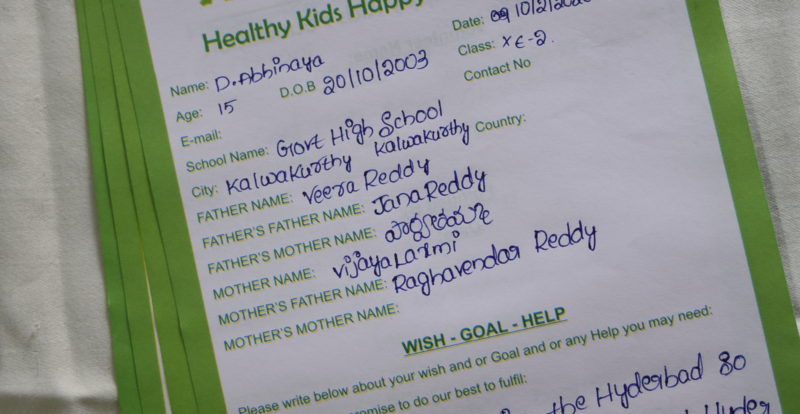 Healthy Kids Happy
Date: 10/2/2020
Name: D.Abhinaya
Class: X E-2.
Age: 15
D.O.B 20/10/2003
Contact No
E-mail:
School Name: Govt High School
Kalwakurthy
City: Kalwakurthy
Country:
FATHER NAME: Veera Reddy
FATHER'S FATHER NAME: Jana Reddy
FATHER'S MOTHER NAME:
MOTHER NAME: VijayaLaxmi
MOTHER'S FATHER NAME: Raghavendar Reddy
MOTHER'S MOTHER NAME:
WISH - GOAL - HELP
Please write below about your wish and or Goal and or any Help you may need:
promise to do our best to fulfil:
the Hyderabad 80